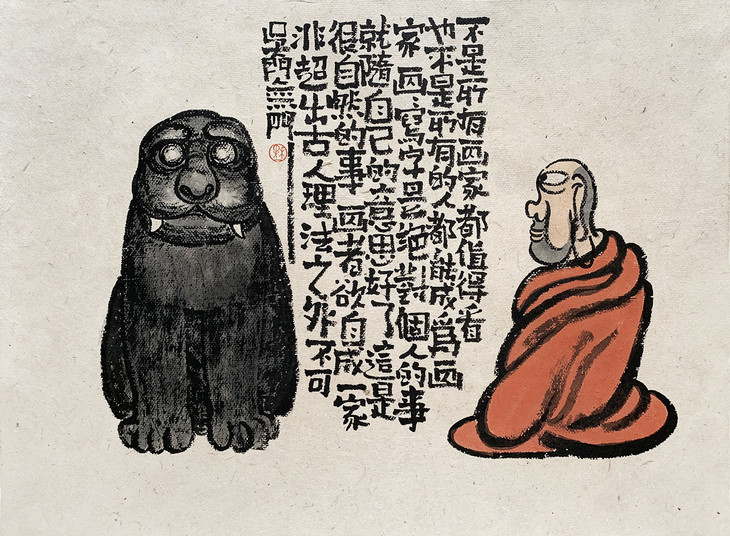 不是所有画家都值得看
也不是所有的人都能成爲画
家画〻寫字是絕對個人的事
就隨自己的意思好了這是
很自然的事画者欲自成一家
非超出古人理法之外不可
吳門無門